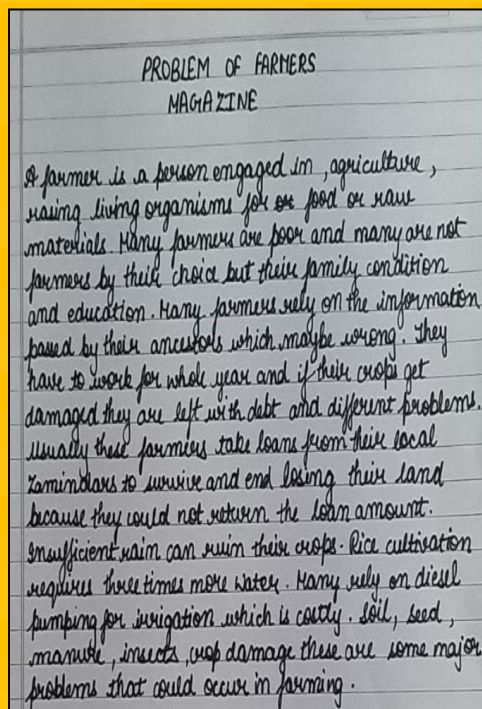 PROBLEM OF FARMERS
MAGAZINE
A farmer is a person engaged in , agriculture ,
raising living organisms for or food or raw
materials. Many farmers are poor and many are not
farmers by their choice but their family condition
and education. Many farmers rely on the information
passed by their ancestors which maybe wrong. They
have to work for whole year and if their crops get
damaged they are left with debt and different problems.
Usually these farmers take loans from their local
Zamindars to survive and end losing their land
because they could not return the loan amount.
Insufficient rain can ruin their crops. Rice cultivation
requires three times more water. Many rely on diesel
pumping for irrigation which is costly. Soil, seed,
manure, insects, crop damage these are some major
problems that could occur in farming.